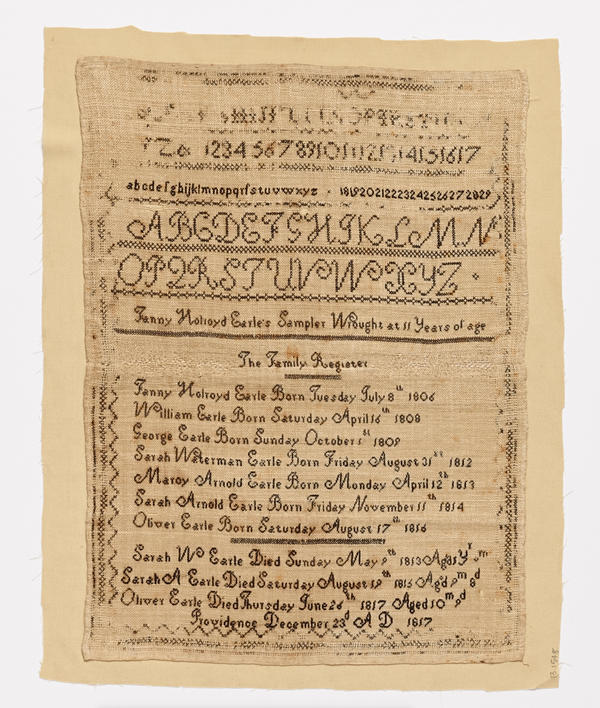 Z& 1234567891011121314151617
abcdefghijklmnopqrſstuvwxyz 181920212223242526272829
ABCDEFGHIKLMN
OPQRSTUVWXYZ
Fanny Holroyd Earle's Sampler Wrought at 11 Years of age
The Family Register
Fanny Holroyd Earle Born Tuesday July 8th 1806
William Earle Born Saturday April 16th 1808
George Earle Born Sunday October 1st 1809
Sarah Waterman Earle Born Friday August 31st 1812
Marcy Arnold Earle Born Monday April 12th 1813
Sarah Arnold Earle Born Friday November 11th 1814
Oliver Earle Born Saturday August 17th 1816
Sarah Wn Earle Died Sunday May 9th 1813
Sarah A Earle Died Saturday August 19th 1815 Aged 9m 8d
Oliver Earle Died Thursday June 26th 1817 Aged 10m 9d
Providence December 23d A D 1817